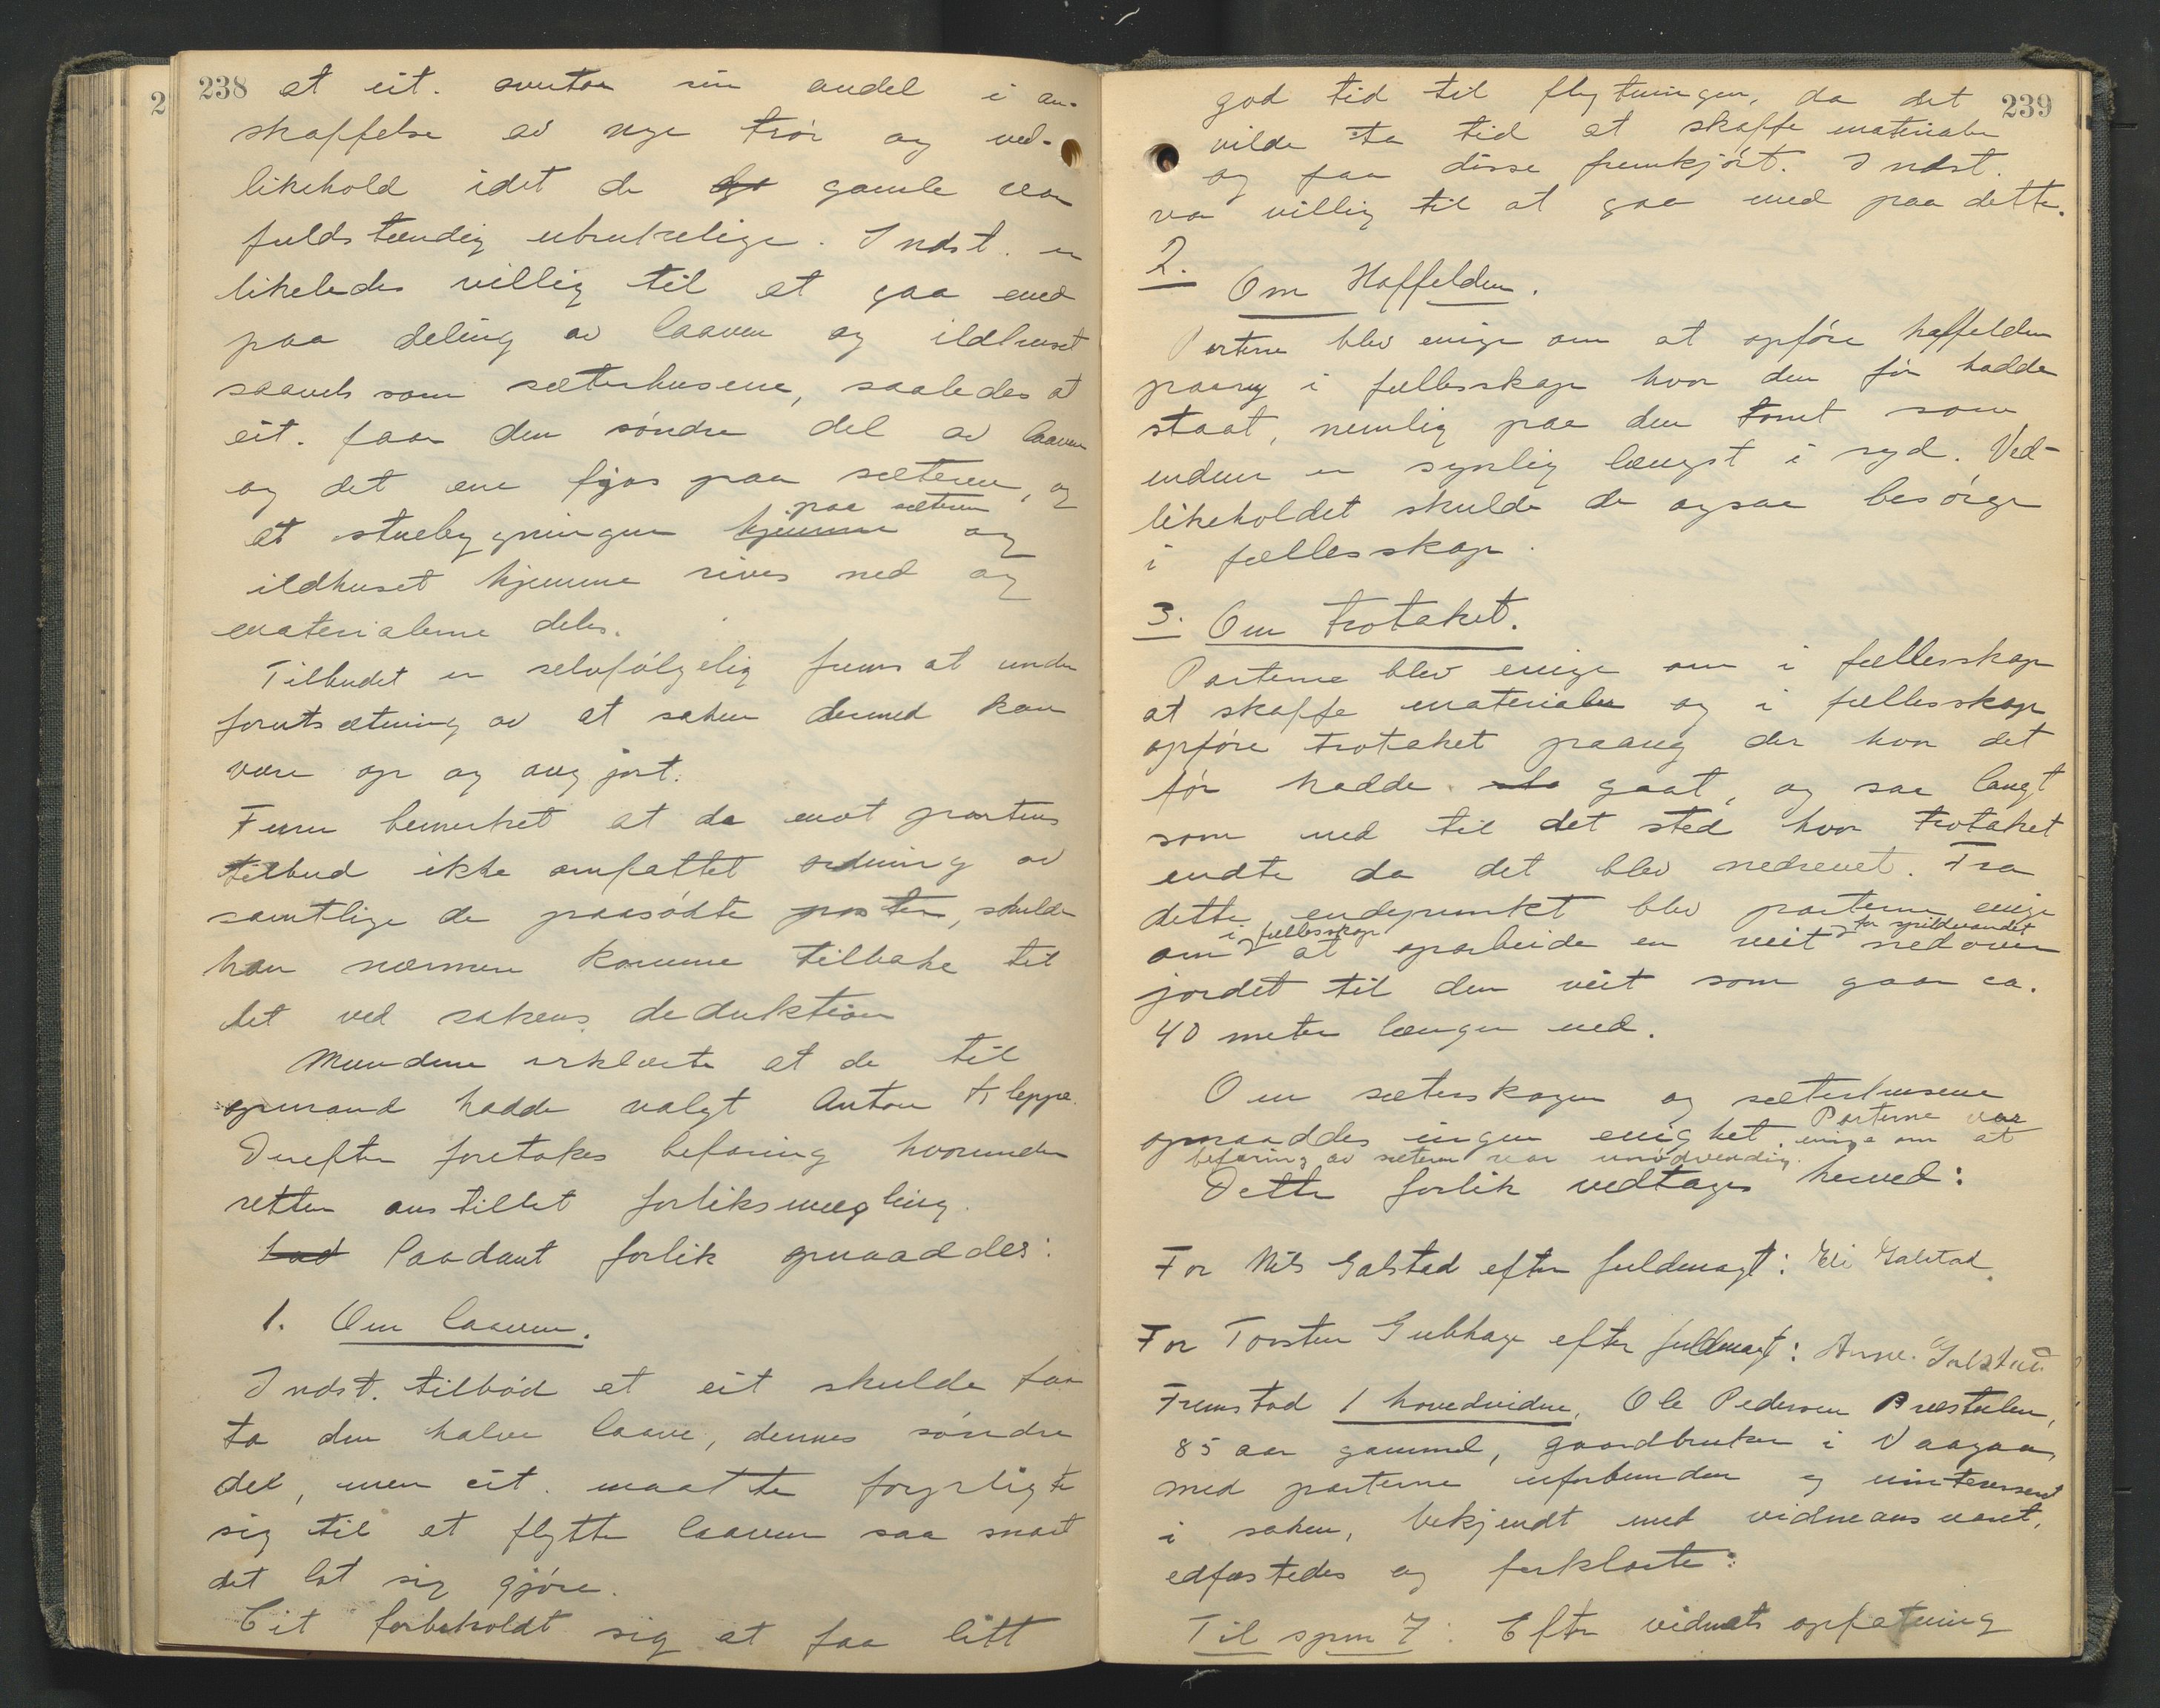 238
at cit. overtar sin andel i an-
skaffelse av nye trør og ved-
likehold idet de gamle var
fuldstændig ubrukelige. Indst. er
likeledes villig til at gaa med
paa deling av laaven og ildhuset
saavelsom sæterhusene, saaledes at
cit. faar den søndre del av laaven
og det ene fjøs paa sæteren, og
paa sæteren
at stuebygningen hjemme og
ildhuset hjemme rives ned og
materialerne deles.
Tilbudet er selvfølgelig frems at under
forutsætning av at saken dermed kan
være op og avgjort.
Furu bemerket at da motpartens
tilbud ikke omfattet ordning av
samtlige de paasøkte poster, skulde
han nærmere komme tilbake til
det ved sakens deduktion
Mændene erklærte at de til
opmand hadde valgt Anton Kleppe.
Derefter foretokes befaring hvorunder
retten anstillet forliksmegling.
Saadant forlik opnaaddes:
1. Om laaven.
Indst. tilbød at cit skulde faa
ta den halve laave, dennes søndre
del, men cit. maatte forpligte
sig til at flytte laaven saa snart
det lot sig gjøre.
Cit forbeholdt sig at faa litt
239
god tid til flytningen, da det
vilde ta tid at skaffe materialer
og faa disse fremkjørt. Indst.
var villig til at gaa med paa dette.
2.
Om Haffelden.
Parterne blev enige om at opføre haffelden
paany i fællesskap hvor den før hadde
staat, nemlig paa den tomt som
endnu er synlig længst i syd. Ved-
likeholdet skulde de ogsaa besørge
i fællesskap.
3. Om trotaket.
Parterne blev enige om i fællesskap
at skaffe materialer og i fællesskap
opføre trotaket paany der hvor det
før hadde gaat, og saa langt
som ned til det sted hvor trotaket
endte da det blev nedrevet. Fra
dette endepunkt blev parterne enige
i fællesskap for spildvandet
om at oparbeide en veit nedover
jordet til den veit som gaar ca.
40 meter længer ned.
Om sæterskogen og sæterhusene
opnaaddes ingen enighet. Parterne var enige om at
befaring av sæteren var unødvendig.
Dette forlik vedtages herved:
For Nils Galstad efter fuldmagt: Eli Galstad.
For Torsten Gubhage efter fuldmagt: Anne Galstad
Fremstod 1 hovedvidne, Ole Pedersen Præstulen,
85 aar gammel, gaardbruker i Vaagaa,
med parterne uforbunden og uinteressert
i saken, bekjendt med vidneansvaret,
edfæstedes og forklarte:
Til spm 7: Efter vidnets opfatning